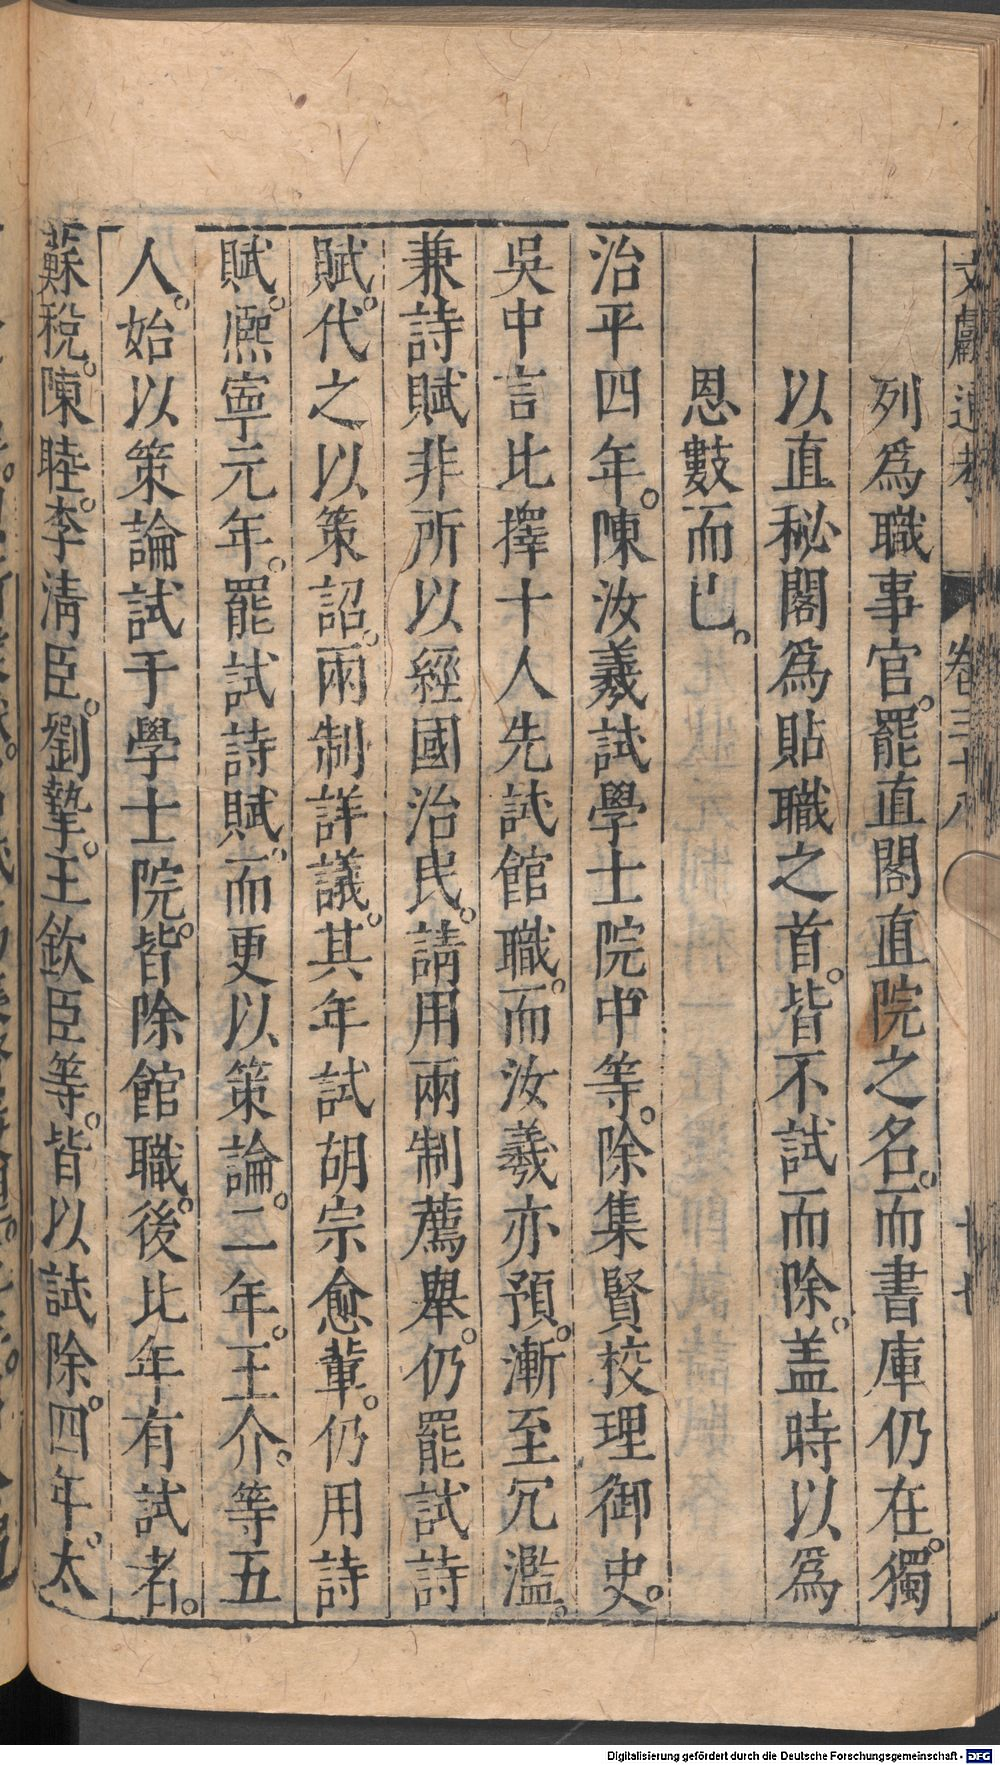 文獻通考 卷三十八 十七
列爲職事官。罷直閣直院之名。而書庫仍在。獨
以直秘閣爲貼職之首。皆不試而除。盖時以爲
恩數而已。
治平四年。陳汝羲試學士院中等。除集賢校理御史。
吳中言比擇十人先試館職。而汝羲亦預。漸至冗濫。
兼詩賦非所以經國治民。請用兩制薦舉。仍罷試詩
賦。代之以策詔。兩制詳議。其年試胡宗愈輩。仍用詩
賦。熈寧元年。罷試詩賦。而更以策論。二年。王介。等五
人。始以策論試于學士院。皆除館職。後比年有試者。
蘇稅。陳睦。李淸臣。劉摯。王欽臣等。皆以試除。四年。太
Digitalisierung gefördert durch die Deutsche Forschungsgemeinschaft - DFG